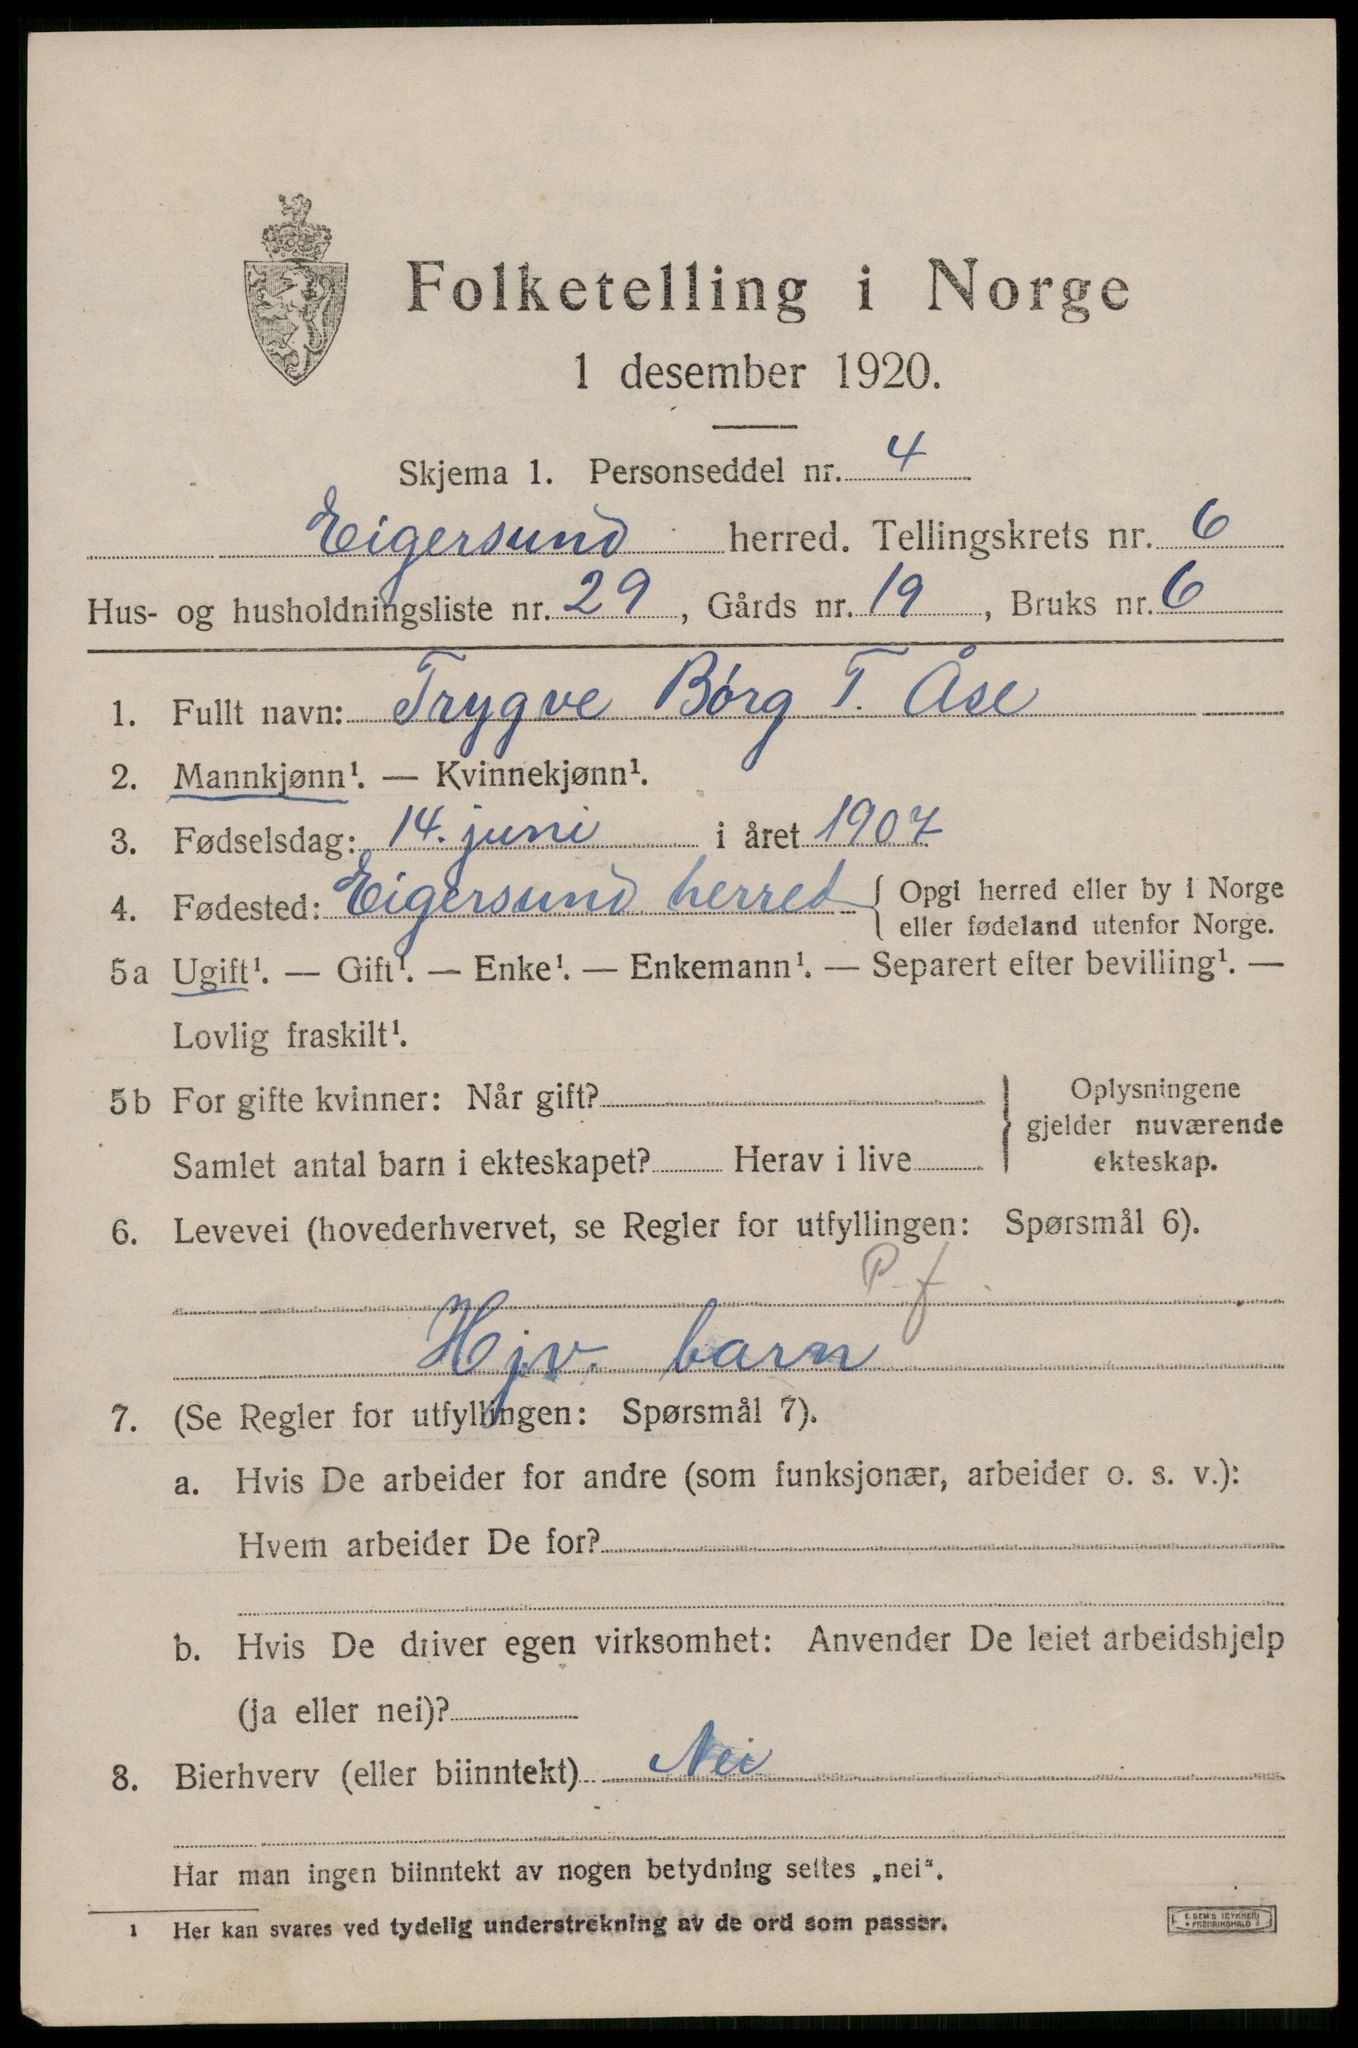 Folketelling i Norge
1 desember 1920.
Skjema 1. Personseddel nr. 4
Eigersund herred. Tellingskrets nr. 6
Hus- og husholdningsliste nr. 29, Gårds nr. 19, Bruks nr. 6
1. Fullt navn: Trygve Børg T. Åse
2. Mannkjønn¹. — Kvinnekjønn¹.
3. Fødselsdag: 14. juni i året 1907
4. Fødested: Eigersund herred { Opgi herred eller by i Norge
eller fødeland utenfor Norge.
5a Ugift¹. — Gift¹. — Enke¹. — Enkemann¹. — Separert efter bevilling¹. —
Lovlig fraskilt¹.
5b For gifte kvinner: Når gift?
Samlet antal barn i ekteskapet? Herav i live
} Oplysningene
gjelder nuværende
ekteskap.
6. Levevei (hovederhvervet, se Regler for utfyllingen: Spørsmål 6).
P. f.
Hjv. barn
7. (Se Regler for utfyllingen: Spørsmål 7).
a. Hvis De arbeider for andre (som funksjonær, arbeider o. s. v.):
Hvem arbeider De for?
b. Hvis De driver egen virksomhet: Anvender De leiet arbeidshjelp
(ja eller nei)?
8. Bierhverv (eller biinntekt) Nei
Har man ingen biinntekt av nogen betydning settes „nei“.
1 Her kan svares ved tydelig understrekning av de ord som passer.
E. SEM'S TRYKKERI
FREDRIKSHALD